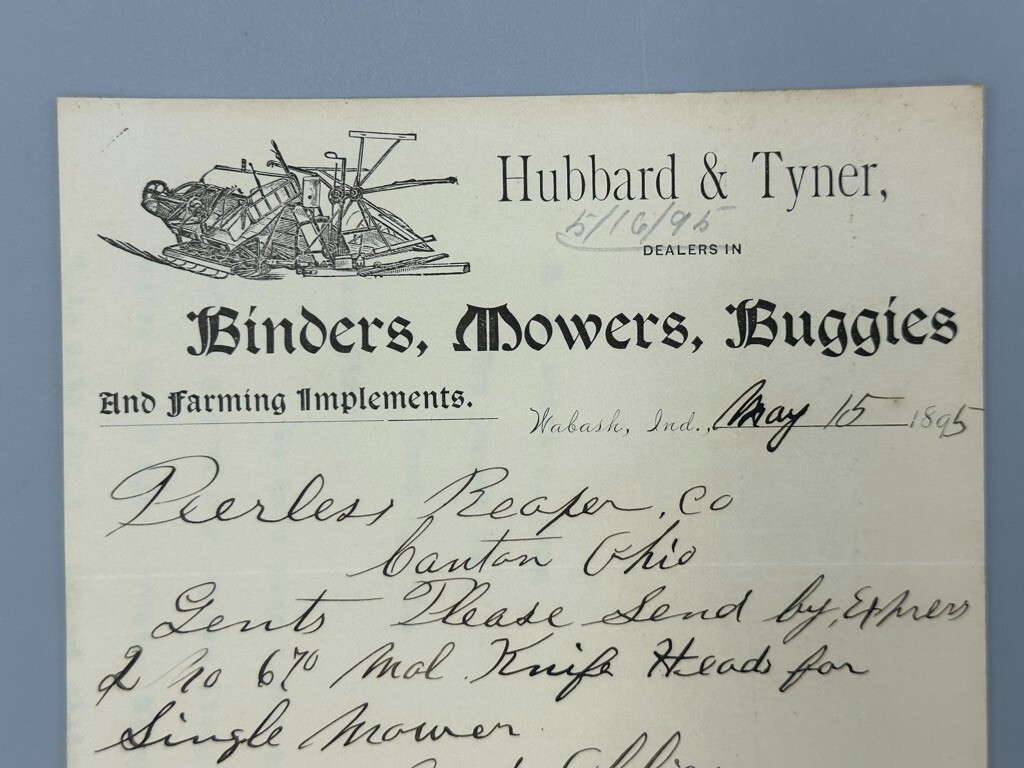 Hubbard & Tyner,
5/16/95
DEALERS IN
Binders, Mowers, Buggies
And Farming Implements.
Wabash, Ind., May 15 1895
Peerless Reaper, Co
Canton Ohio
Gents Please Send by Express
2 No 670 Mal Knife Heads for
Single Mower